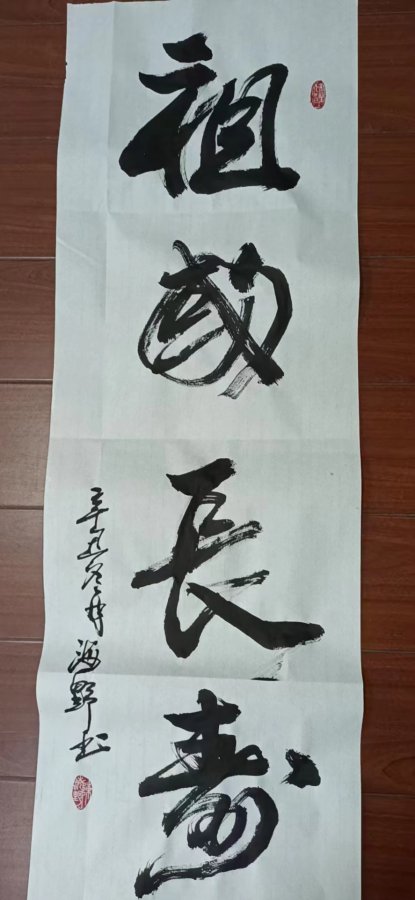 祖國長寿
辛丑冬月海野书